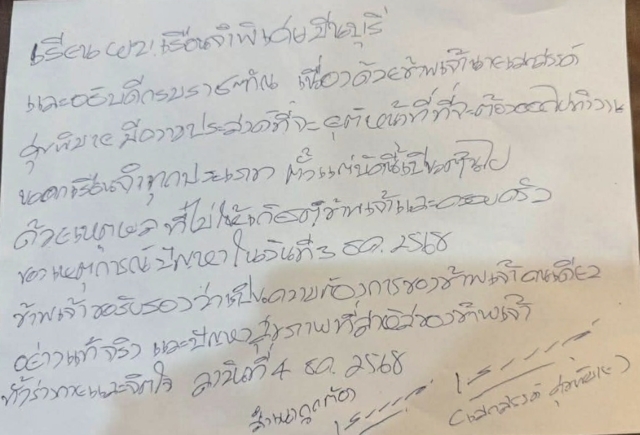 เรียน ผบ.เรือนจำพิเศษมีนบุรี
และอธิบดีกรมราชทัณฑ์ เนื่องด้วยข้าพเจ้านายเสกสรรค์
สุขพิมาย มีความประสงค์ที่จะยุติหน้าที่ที่จะต้องออกไปทำงาน
นอกเรือนจำทุกประเภท ตั้งแต่บัดนี้เป็นต้นไป
ด้วยเหตุผล ที่ไม่ให้เกียรติข้าพเจ้าและครอบครัว
ของเหตุการณ์ปัญหาในวันที่ 3 ธค. 2568
ข้าพเจ้าขอรับรองว่าเป็นความต้องการของข้าพเจ้าคนเดียว
อย่างแท้จริง และปัญหาสุขภาพที่สาหัสของข้าพเจ้า
ทั้งร่างกายและจิตใจ ลาวันที่ 4 ธค. 2568
สำเนาถูกต้อง